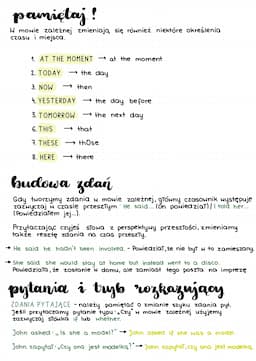 pamiętaj!
W mowie zależnej zmieniają się również niektóre określenia
czasu i miejsca.
1. AT THE MOMENT → at the moment
2. TODAY → the day
3. NOW → then
4. YESTERDAY → the day before
5. TOMORROW → the next day
6. THIS → that
7. THESE → those
8. HERE → there
budowa zdań
Gdy tworzymy zdania w mowie zależnej, główny czasownik występuje
zazwyczaj w czasie przeszłym He said... (on powiedział) / I told her...
(Powiedziałem jej...).
Przytaczając czyjeś słowa z perspektywy przeszłości, zmieniamy
także resztę zdania na czas przeszły.
→ He said he hadn't been involved. - Powiedział, że nie był w to zamieszany.
→ She said she would stay at home but instead went to a disco.
Powiedziała, że zostanie w domu, ale zamiast tego poszła na imprezę
pytania i tryb rozkazujący
ZDANIA PYTAJĄCE - należy pamiętać o zmianie szyku zdania pyt.
Jeśli przytaczamy pytanie typu „Czy" w mowie zależnej użyjemy
zazwyczaj słówka if lub whether.
John asked: „Is she a model?" → John asked if she was a model.
John zapytał: „Czy ona jest modelką?" → John zapytał, czy ona jest modelką.